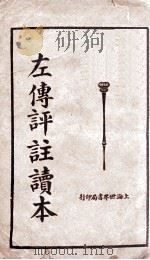 左傳評註讀本
上海世界書局印行
www.duxiu.com